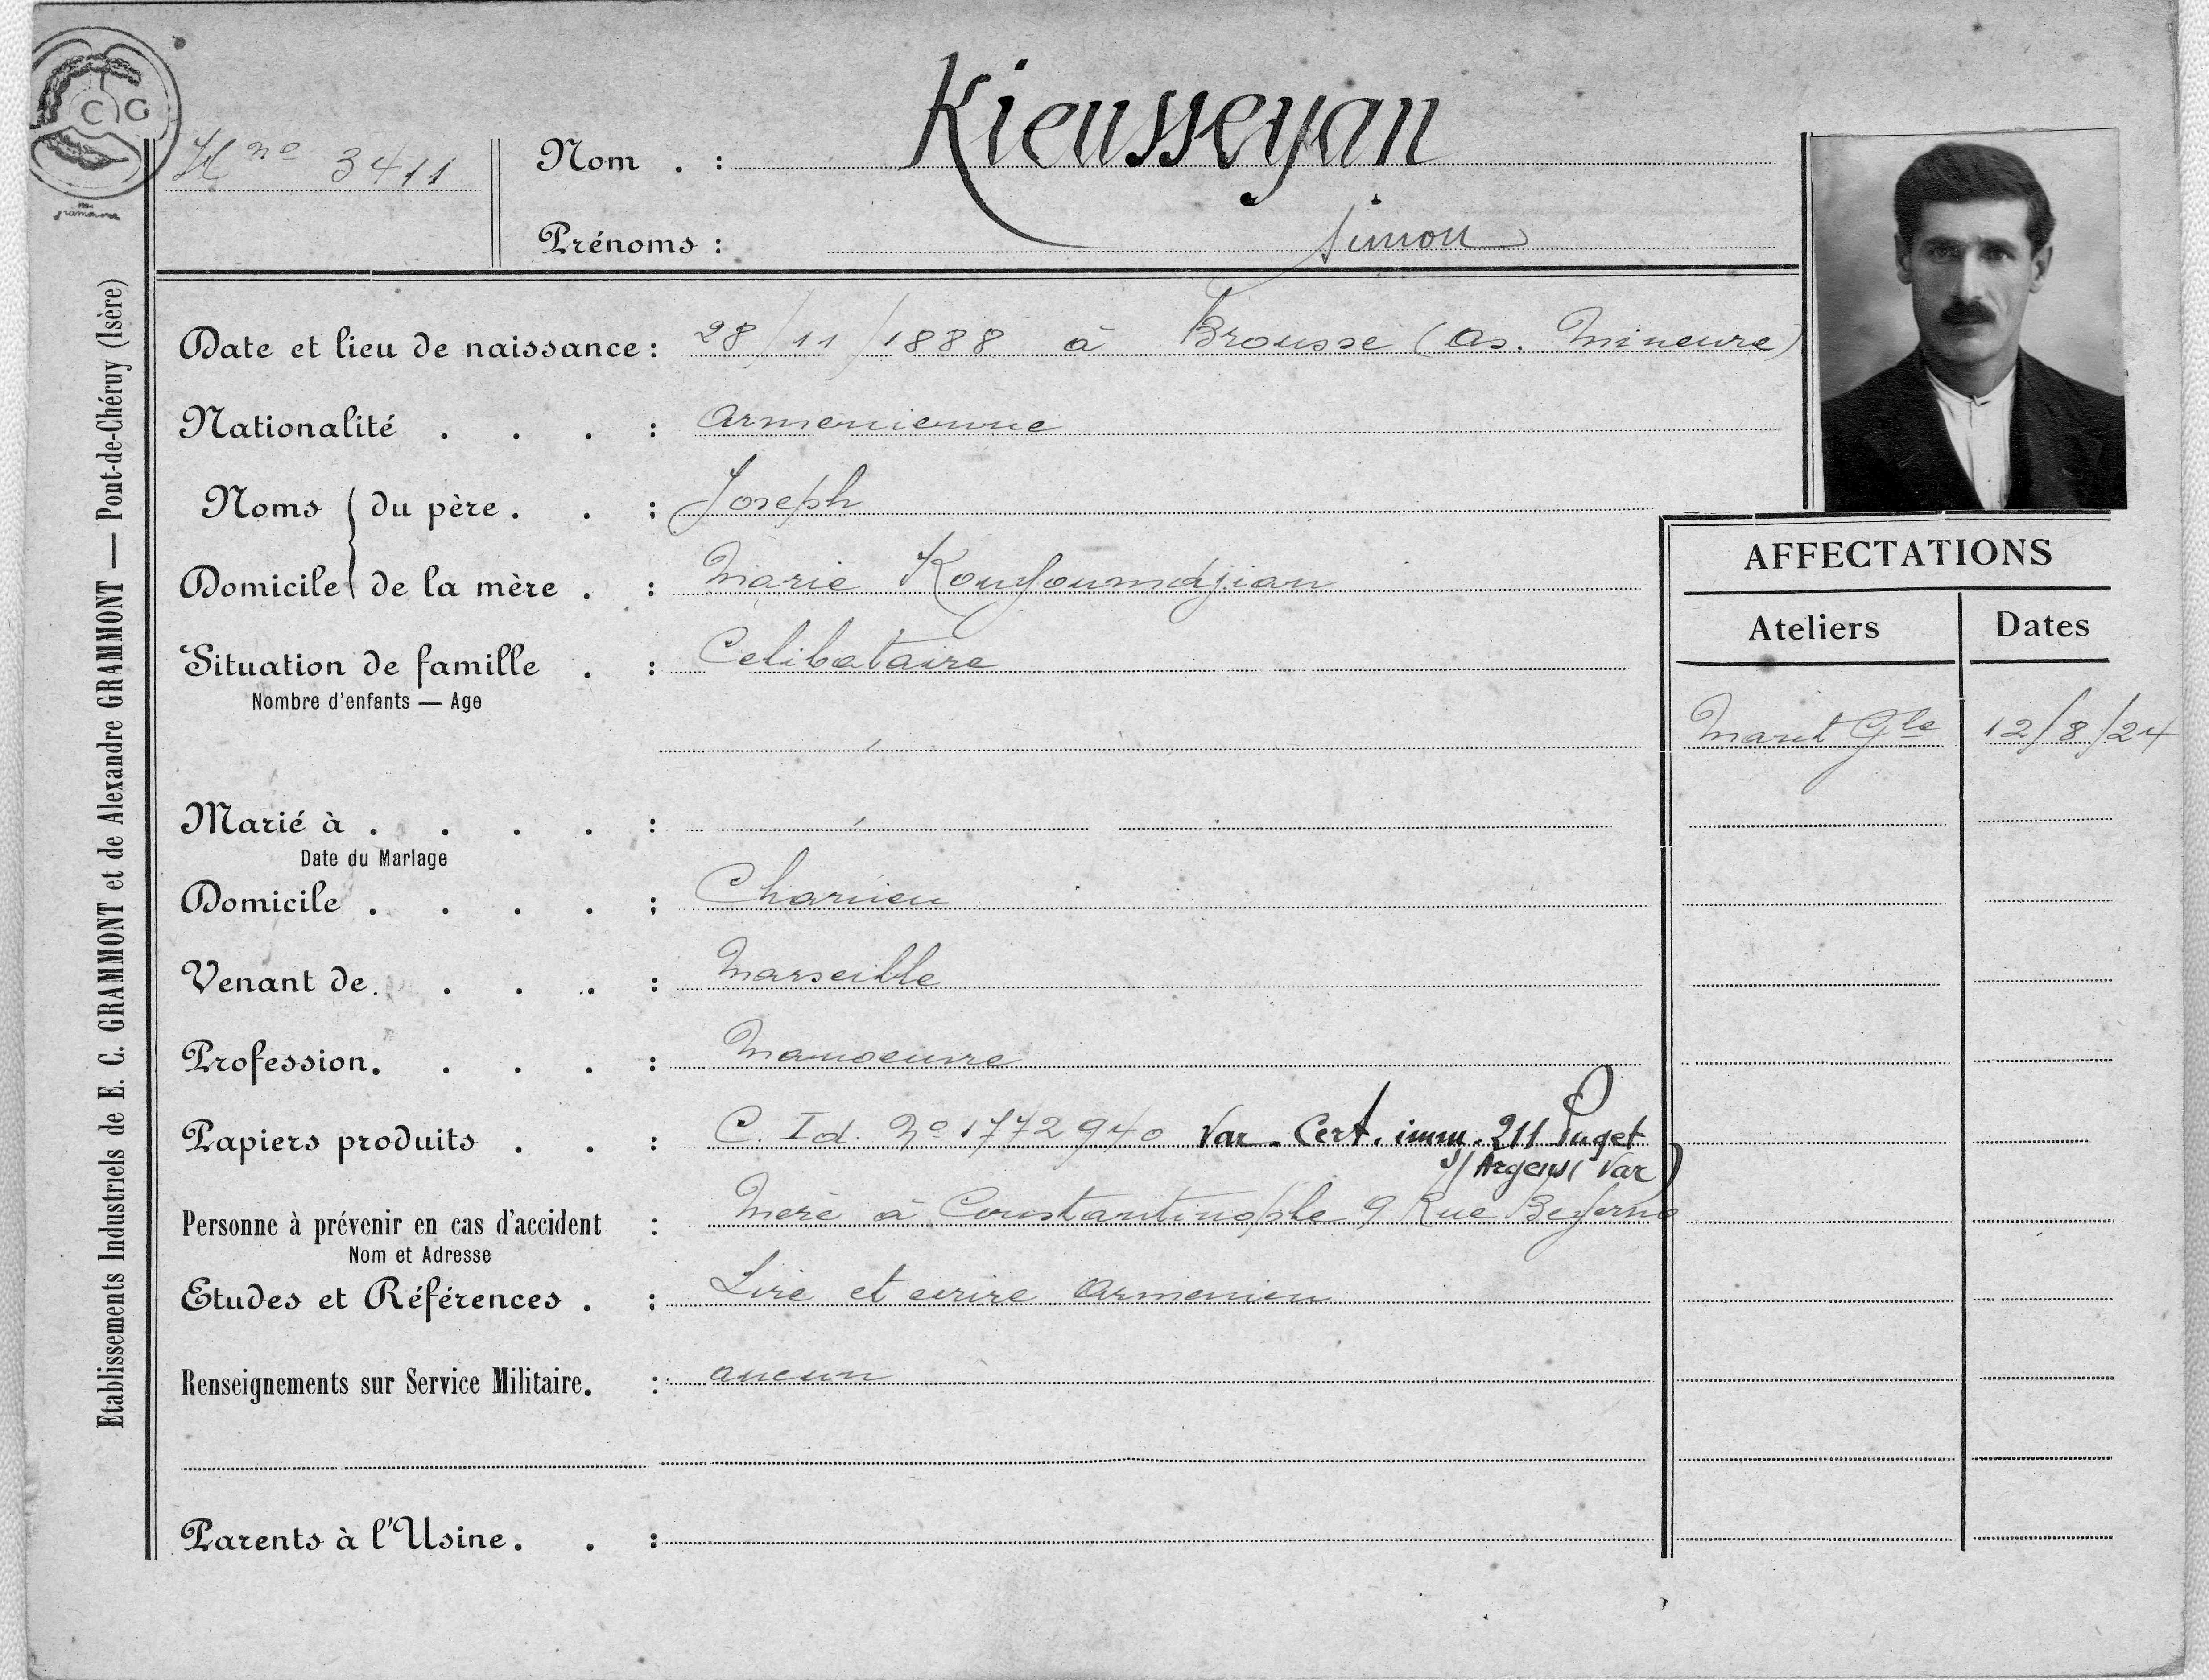 C G
H nº 3411
Nom . : Kieusseyan
Prénoms : Simon
Etablissements Industriels de E. C. GRAMMONT et de Alexandre GRAMMONT — Pont-de-Chéruy (Isère)
Date et lieu de naissance : 28/11/1888 à Brousse (As. Mineure)
Nationalité . . . : Armenienne
Noms du père . . : Joseph
Domicile de la mère . : Marie Kouyoumdjian
Situation de famille . : Celibataire
Nombre d'enfants — Age
Marié à . . . . :
Date du Mariage
Domicile . . . . : Charvieu
Venant de . . . . : Marseille
Profession . . . . : Manoeuvre
Papiers produits . . : C. Id. Nº 1772940 Var. Cert. imm. 211 Puget
s/ Argens (Var)
Personne à prévenir en cas d'accident : Mere à Constantinople 9 Rue
Nom et Adresse
Etudes et Références . : Lire et ecrire Armenien
Renseignements sur Service Militaire . : aucun
Parents à l'Usine . . :
AFFECTATIONS
Ateliers Dates
Gle 12/8/24